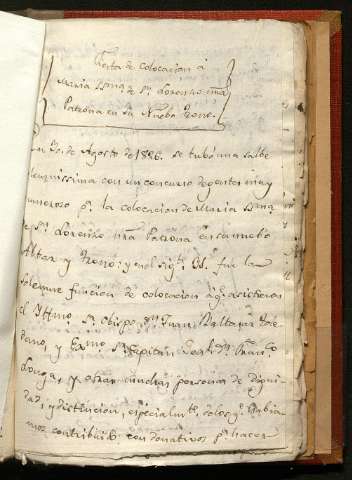 Fiesta de colocacion á
Maria Ssma. de Sn. Lorenzo nra
Patrona en su Nuebo Trono.
En 20. de Agosto de 1826. se tubo una salbe
solemnissima con un concurso de gentes muy
numeroso pr. la colocacion de Maria Ssma.
de Sn. Lorenzo nra Patrona en su nuebo
Altar y Trono: y en el sigte. fue la
solemne funcion de colocacion a qe. asistieron
el Yllmo. Sr. Obispo, Dn. Juan Baltasar Tole
dano, y Exmo. Sr. Capitan Genl. Dn. Franco.
Longa, y otras muchas personas de digni
dad, y distincion, especialmte. de los qe. habia
mos contribuido con donativos pa. hacer